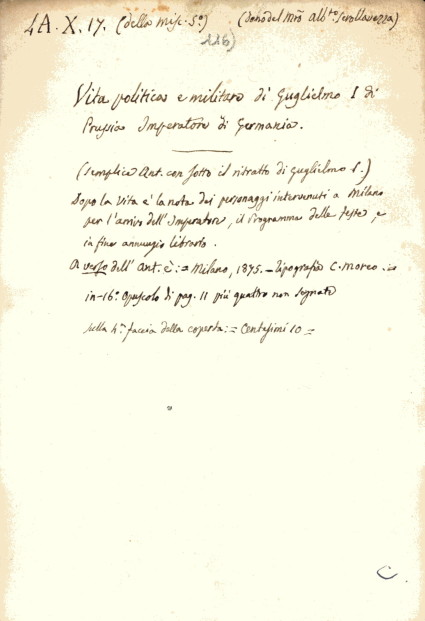 4A. X. 17. (della misc. 5ª) (dono del Mrō Alb.to Serollavezza)
116)
Vita politica e militare di Guglielmo I di
Prussia Imperatore di Germania.
(semplice Ant. con sotto il ritratto di Guglielmo I.)
Dopo la Vita è la nota dei personaggi intervenuti a Milano
per l'arrivo dell'Imperatore, il Programma delle feste, e
in fine annunzio librario.
A verso dell'Ant. è: = Milano, 1875. - Tipografia C. Moreo =
in-16° Opuscolo di pag. 11 più quattro non segnate
sulla 4ª faccia della coperta: = Centesimi 10 =
C